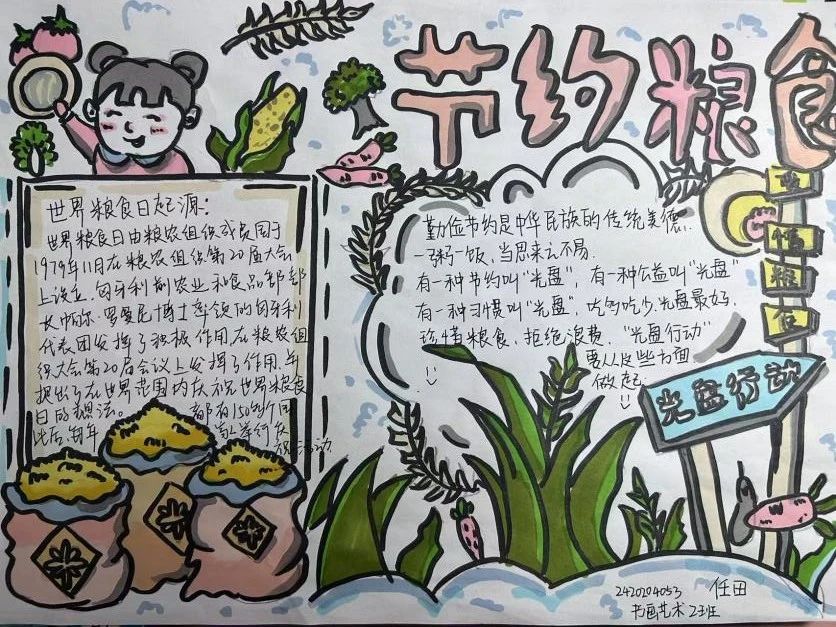 节约粮食
世界粮食日起源:
世界粮食日由粮农组织成员国于
1979年11月在粮农组织第20届大会
上设立,匈牙利前农业和食品部部
长帕尔·罗曼尼博士率领的匈牙利
代表团发挥了积极作用,在粮农组
织大会第20届会议上发挥了作用,并
提出了在世界范围内庆祝世界粮食
日的想法。
此后每年都有150多个国
家举行庆
祝活动
勤俭节约是中华民族的传统美德.
一粥一饭,当思来之不易.
有一种节约叫"光盘",有一种公益叫"光盘"
有一种习惯叫"光盘".吃多吃少.光盘最好.
珍惜粮食,拒绝浪费,"光盘行动"
要从这些方面
做起
惜
粮
食
光盘行动
2420204053 任田
书画艺术2班